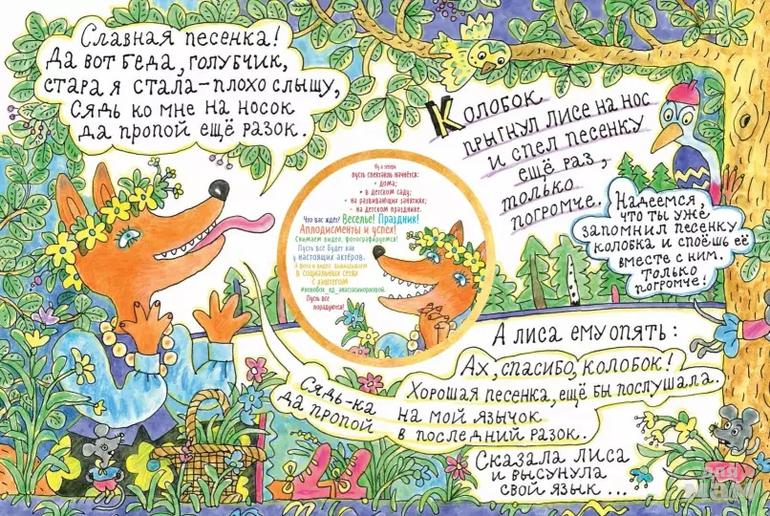 Славная песенка!
Да вот беда, голубчик,
стара я стала-плохо слышу,
сядь ко мне на носок
да пропой ещё разок.
Колобок
прыгнул лисе на нос
и спел песенку
ещё раз,
только
погромче.
Надеемся,
что ты уже
запомнил песенку
колобка и споёшь её
вместе с ним.
Только
погромче!
Ну а теперь
пусть спектакль начнётся:
• дома;
• в детском саду;
• на развивающих занятиях;
• на детском празднике.
Что вас ждёт? Веселье! Праздник!
Аплодисменты и успех!
Снимаем видео, фотографируемся!
Пусть всё будет как
у настоящих актёров.
А фото и видео выкладываем
в социальных сетях
с хэштегом
Пусть все
порадуются!
А лиса ему опять:
Ах, спасибо, колобок!
Хорошая песенка, ещё бы послушала.
Сядь-ка на мой язычок
да пропой в последний разок.
Сказала лиса
и высунула
свой язык ...